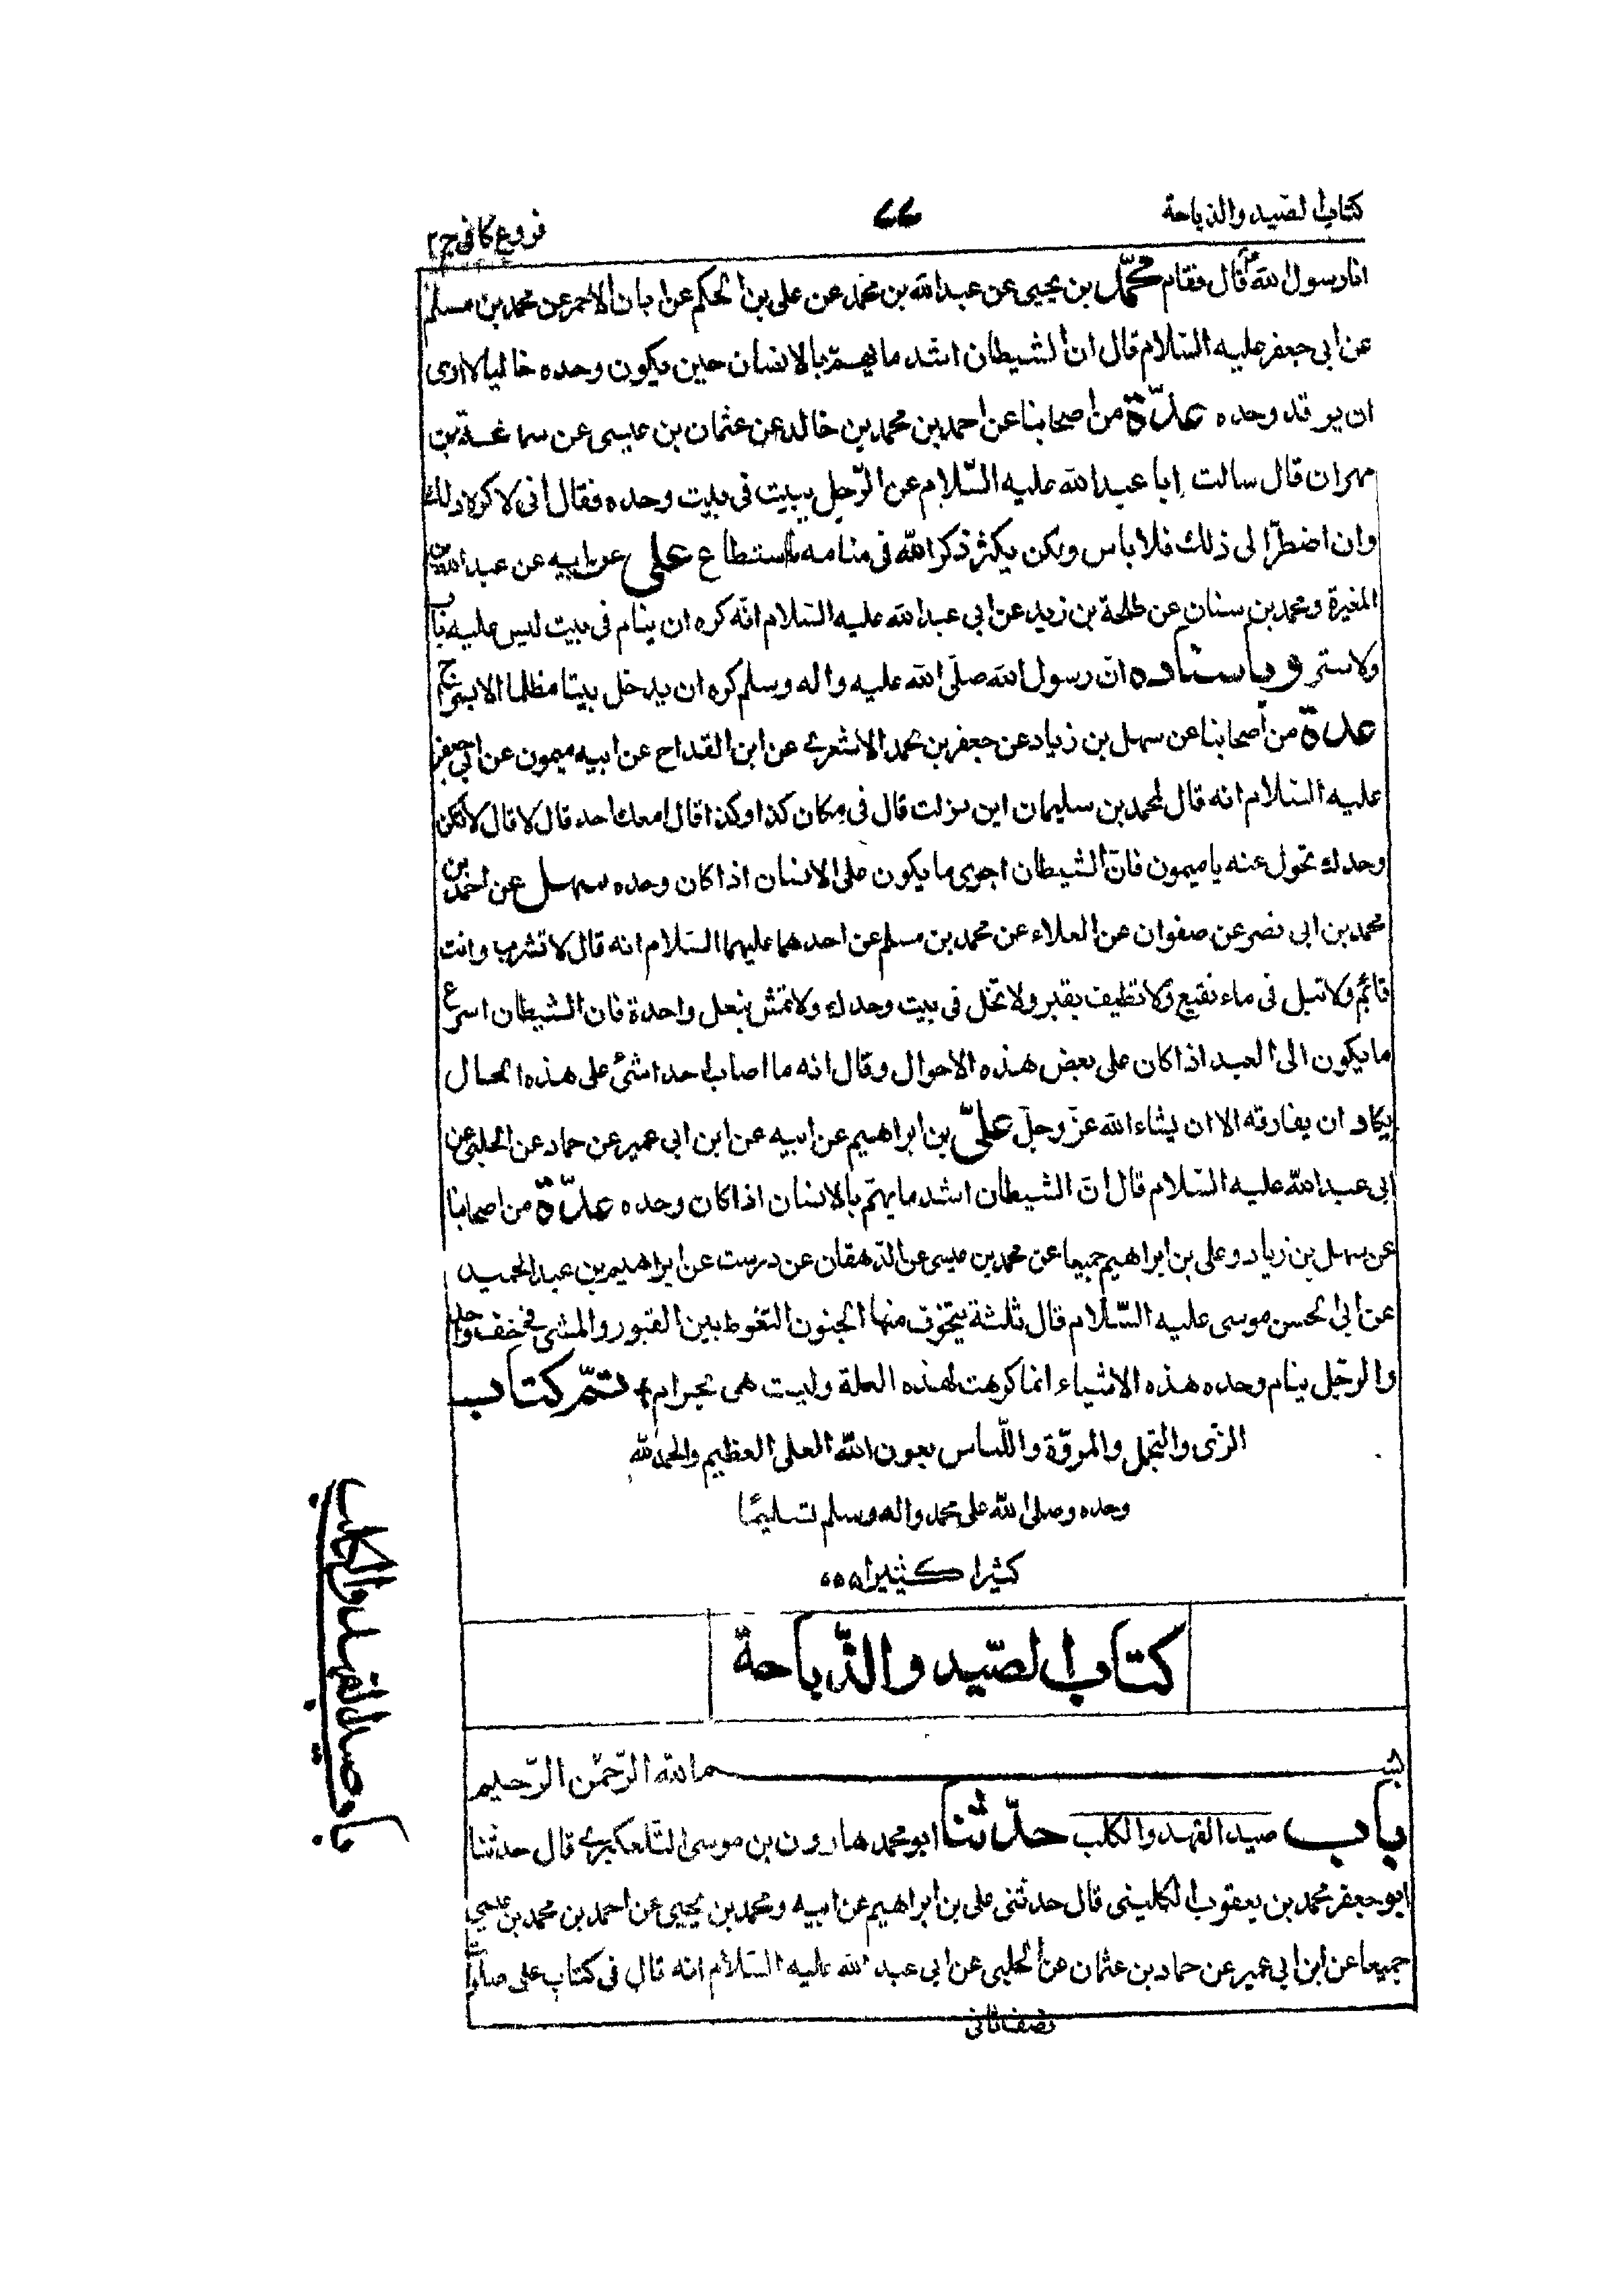 كتاب الصّيد والذباحة
٧٧
فروع كافى ج٢
انا رسول الله ص قال فقام محمّد بن يحيى عن عبدالله بن محمد عن على بن الحكم عن ابان الاحمر عن محمد بن مسلم
عن ابى جعفر عليه السّلام قال ان الشيطان اشد ما يهمّ بالانسان حين يكون وحده خاليا لا ارى
ان يرقد وحده عدّة من اصحابنا عن احمد بن محمد بن خالد عن عثمان بن عيسى عن سماعة بن
مهران قال سالت ابا عبدالله عليه السّلام عن الرّجل يبيت فى بيت وحده فقال انى لاكره ذلك
وان اضطرّ الى ذلك فلا باس ولكن يكثر ذكر الله فى منامه ما استطاع على عن ابيه عن عبدالله بن
المغيرة ومحمد بن سنان عن طلحة بن زيد عن ابى عبدالله عليه السّلام انّه كره ان ينام فى بيت ليس عليه باب
ولا ستر وباسناده انّ رسول الله صلّى الله عليه واله وسلم كره ان يدخل بيتا مظلما الا بسراج
عدة من اصحابنا عن سهل بن زياد عن جعفر بن محمد الاشعرى عن ابن القداح عن ابيه ميمون عن ابى جعفر
عليه السّلام انه قال لمحمد بن سليمان اين نزلت قال فى مكان كذا وكذا قال امعك احد قال لا قال لا تكن
وحدك تحول عنه يا ميمون فانّ الشيطان اجرى ما يكون على الانسان اذا كان وحده سهل عن احمد بن
محمد بن ابى نصر عن صفوان عن العلاء عن محمد بن مسلم عن احدهما عليهما السّلام انه قال لا تشرب وانت
قائم ولا تبل فى ماء نقيع ولا تطف بقبر ولا تخل فى بيت وحدك ولا تمش بنعل واحدة فان الشيطان اسرع
ما يكون الى العبد اذا كان على بعض هذه الاحوال وقال انه ما اصاب احدا شئ على هذه الحال
يكاد ان يفارقه الا ان يشاء الله عزّ وجلّ علىّ بن ابراهيم عن ابيه عن ابن ابى عمير عن حماد عن الحلبى عن
ابى عبدالله عليه السّلام قال انّ الشيطان اشد ما يهمّ بالانسان اذا كان وحده عدّة من اصحابنا
عن سهل بن زياد وعلى بن ابراهيم جميعا عن محمد بن عيسى عن الدّهقان عن درست عن ابراهيم بن عبدالحميد
عن ابى الحسن موسى عليه السّلام قال ثلثة يتخوف منها الجنون التغوط بين القبور والمشى فى خف واحد
والرجل ينام وحده هذه الاشياء انما كرهت لهذه العلة وليست هى بحرام + تمّ كتاب
الزّى والتجمل والمروّة واللباس بعون الله العلى العظيم والحمد لله
وحده وصلى الله على محمد واله وسلم تسليمًا
كثيرا كثيرا
كتاب الصّيد والذّباحة
بسم الله الرّحمٰن الرّحيم
باب صيد الفهد والكلب حدّثنا ابو محمد هارون بن موسى التلعكبرى قال حدثنا
ابو جعفر محمد بن يعقوب الكلينى قال حدثنى على بن ابراهيم عن ابيه ومحمد بن يحيى عن احمد بن محمد بن عيسى
جميعا عن ابن ابى عمير عن حماد بن عثمان عن الحلبى عن ابى عبد الله عليه السّلام انه قال فى كتاب على
نصف ثانى
باب صيد الفهد والكلب